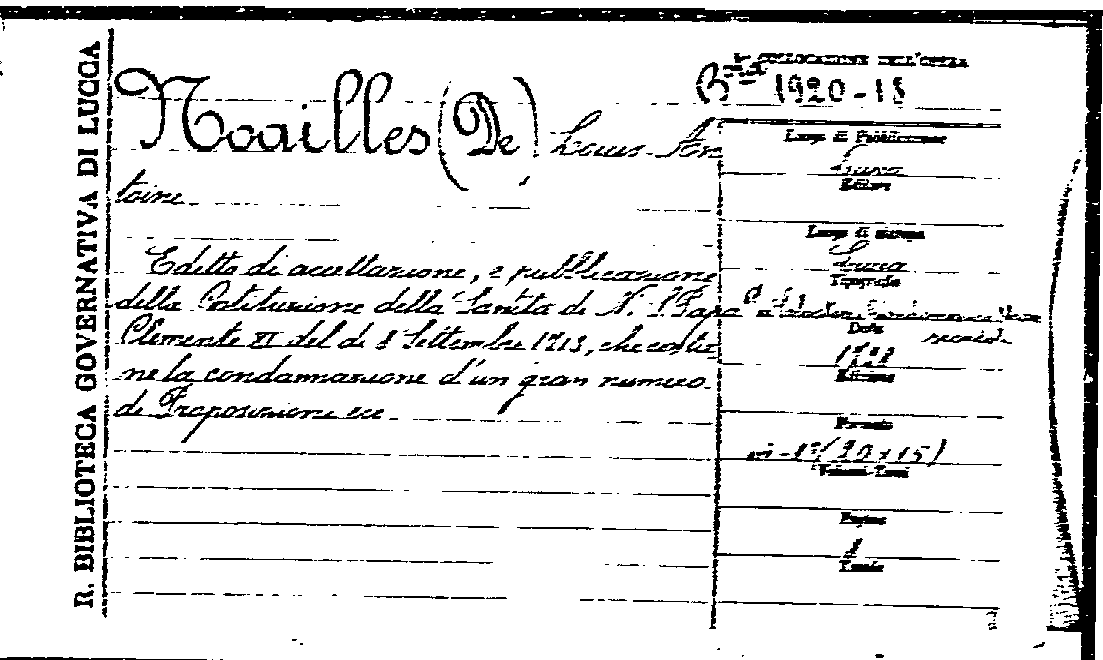 R. BIBLIOTECA GOVERNATIVA DI LUCCA
COLLOCAZIONE DELL'OPERA
Bta 1920-15
Noailles (De) Louis An
toine
Editto di accettazione, e pubblicazione
della Costituzione della Santità di N. S. Papa
Clemente XI del dì 8 Settembre 1713, che contie
ne la condannazione d'un gran numero
di Proposizione ecc
Luogo di Pubblicazione
Lucca
Editore
Luogo di stampa
Lucca
Tipografia
Data
1722
Edizione
Formato
in-4° (20 x 15)
Volumi-Tomi
Pagine
Tavole